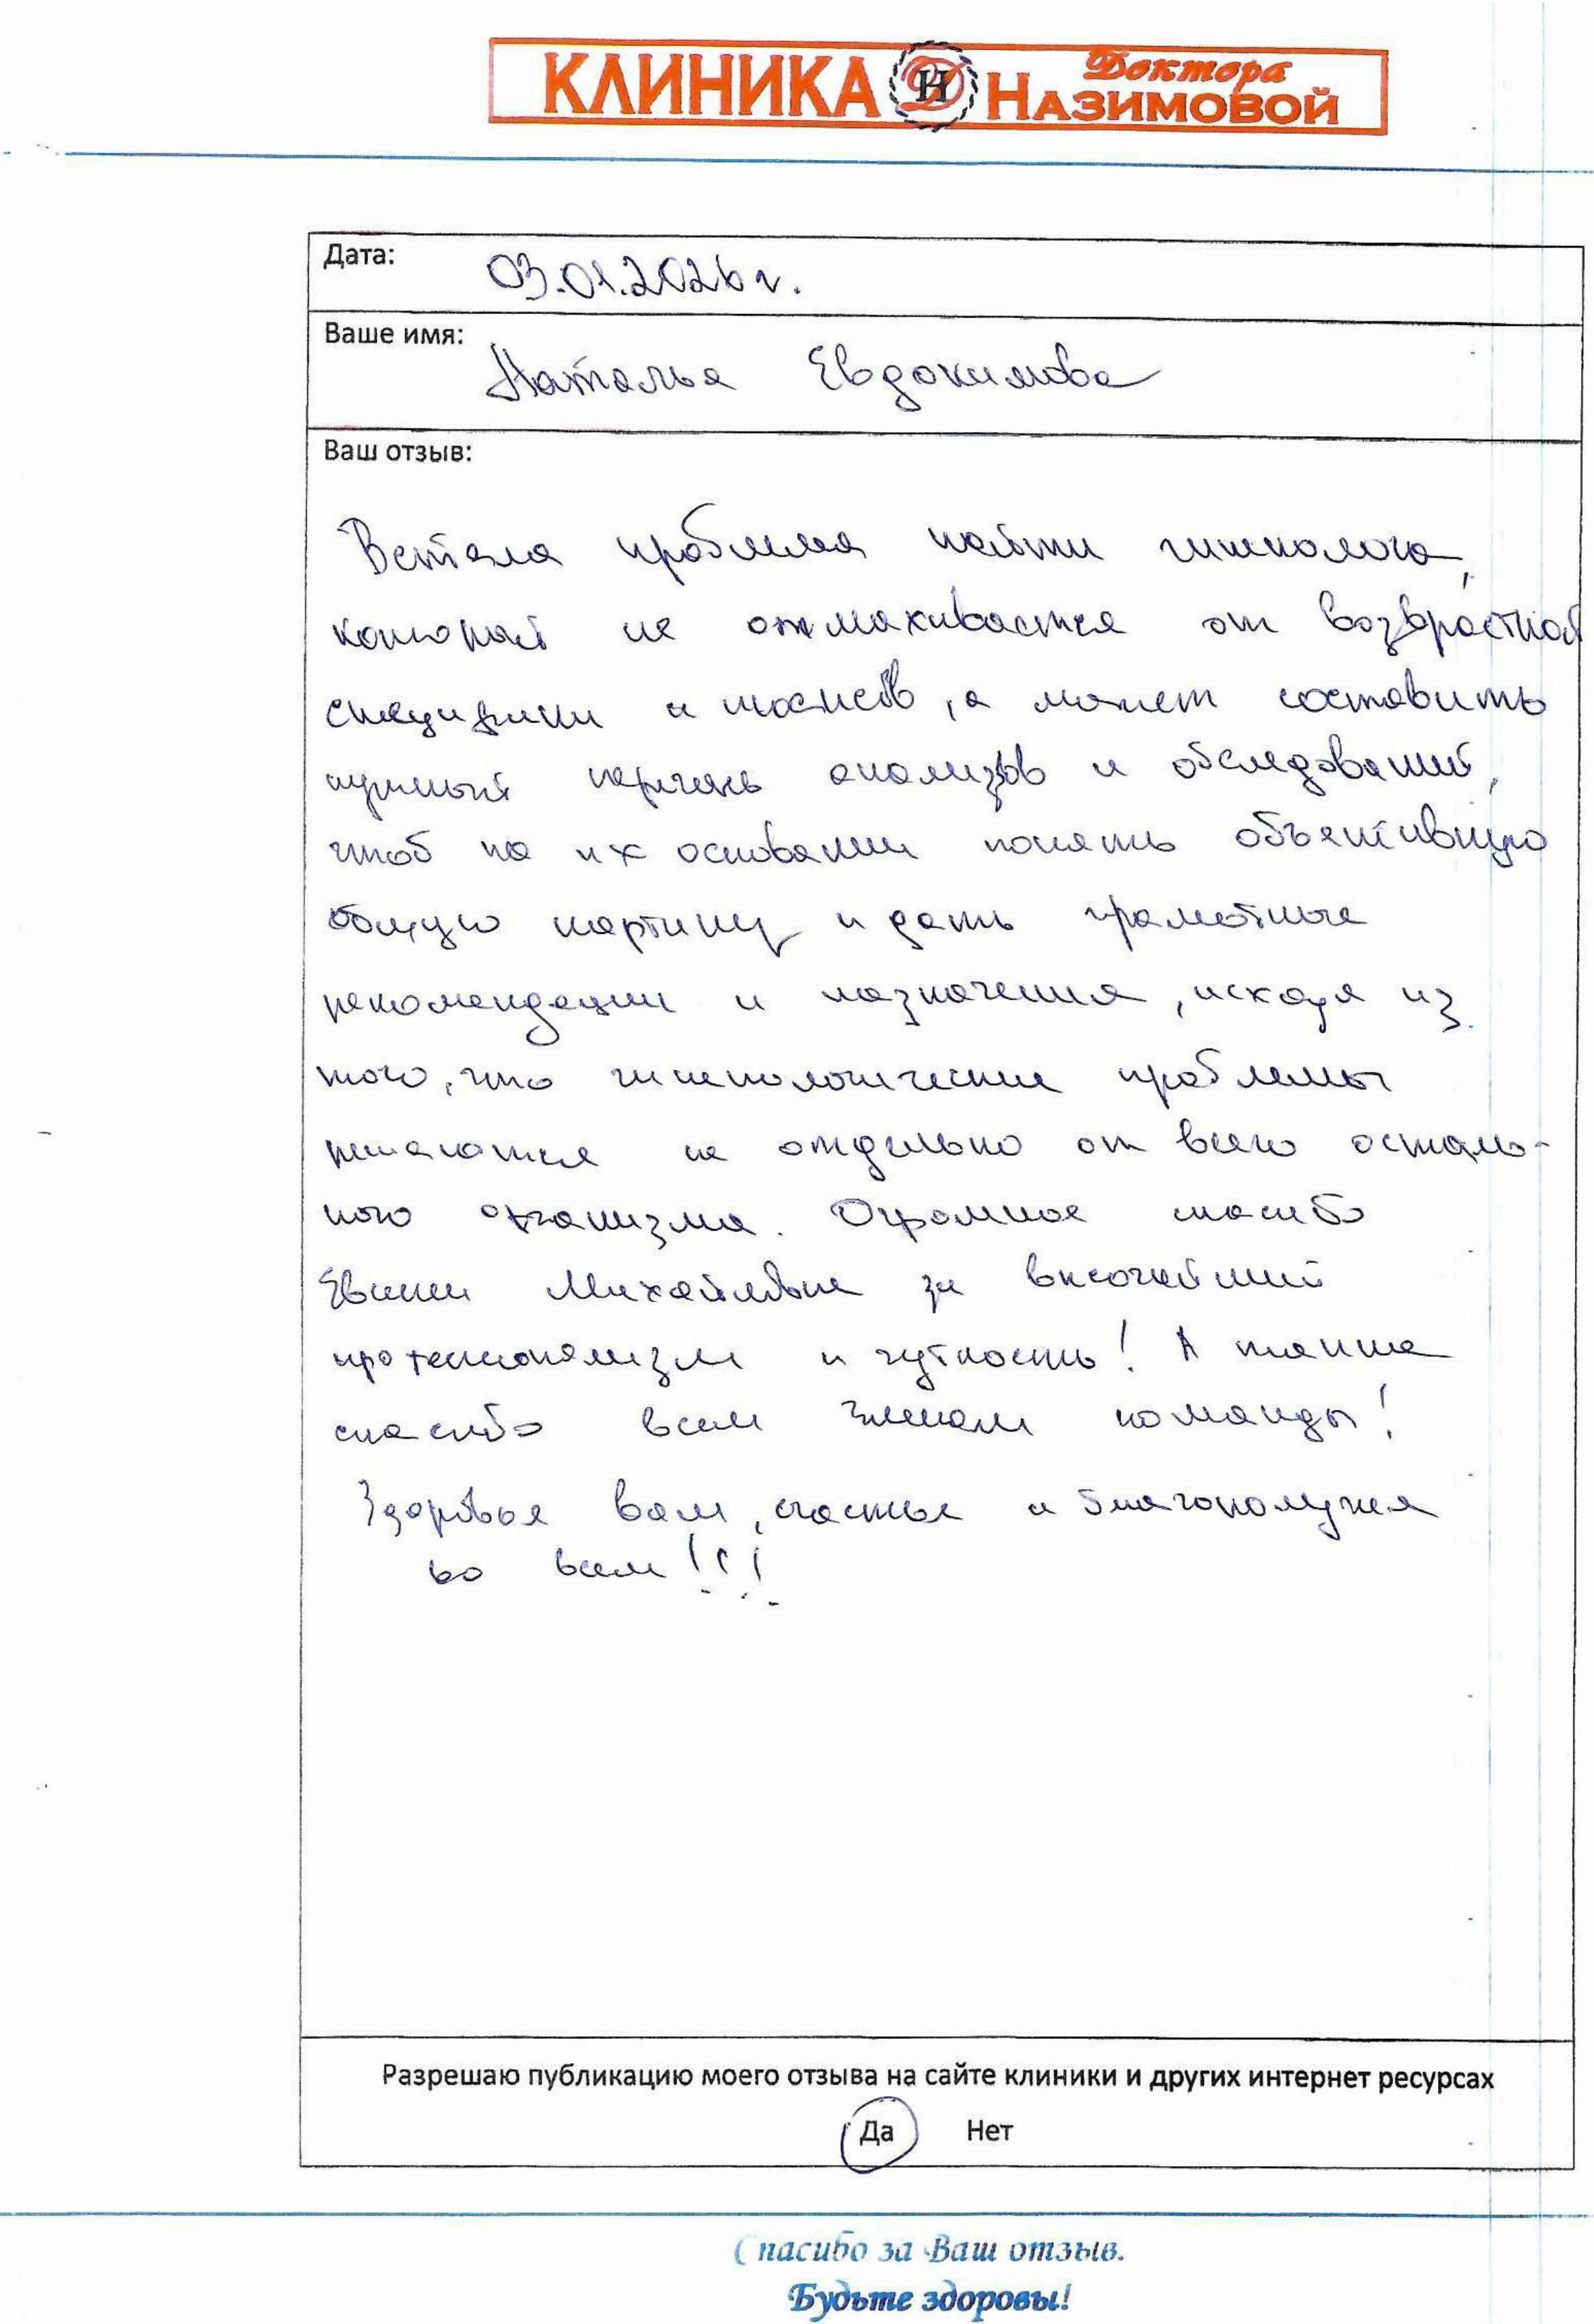 КЛИНИКА Доктора НАЗИМОВОЙ
Дата: 03.01.2026 г.
Ваше имя: Наталья Евдокимова
Ваш отзыв:
Встала проблема найти гинеколога,
который не отмахивается от возврастной
специфики и нюансов, а может составить
нужный перечень анализов и обследований,
чтоб на их основании понять объективную
общую картину и дать грамотные
рекомендации и назначения, исходя из
того, что гинекологические проблемы
решаются не отдельно от всего осталь-
ного организма. Огромное спасибо
Михайловне за высочайший
профессионализм и чуткость! А также
спасибо всем членам команды!
Здоровья вам, счастья и благополучия
во всем!!!
Разрешаю публикацию моего отзыва на сайте клиники и других интернет ресурсах
Да Нет
Спасибо за Ваш отзыв.
Будьте здоровы!